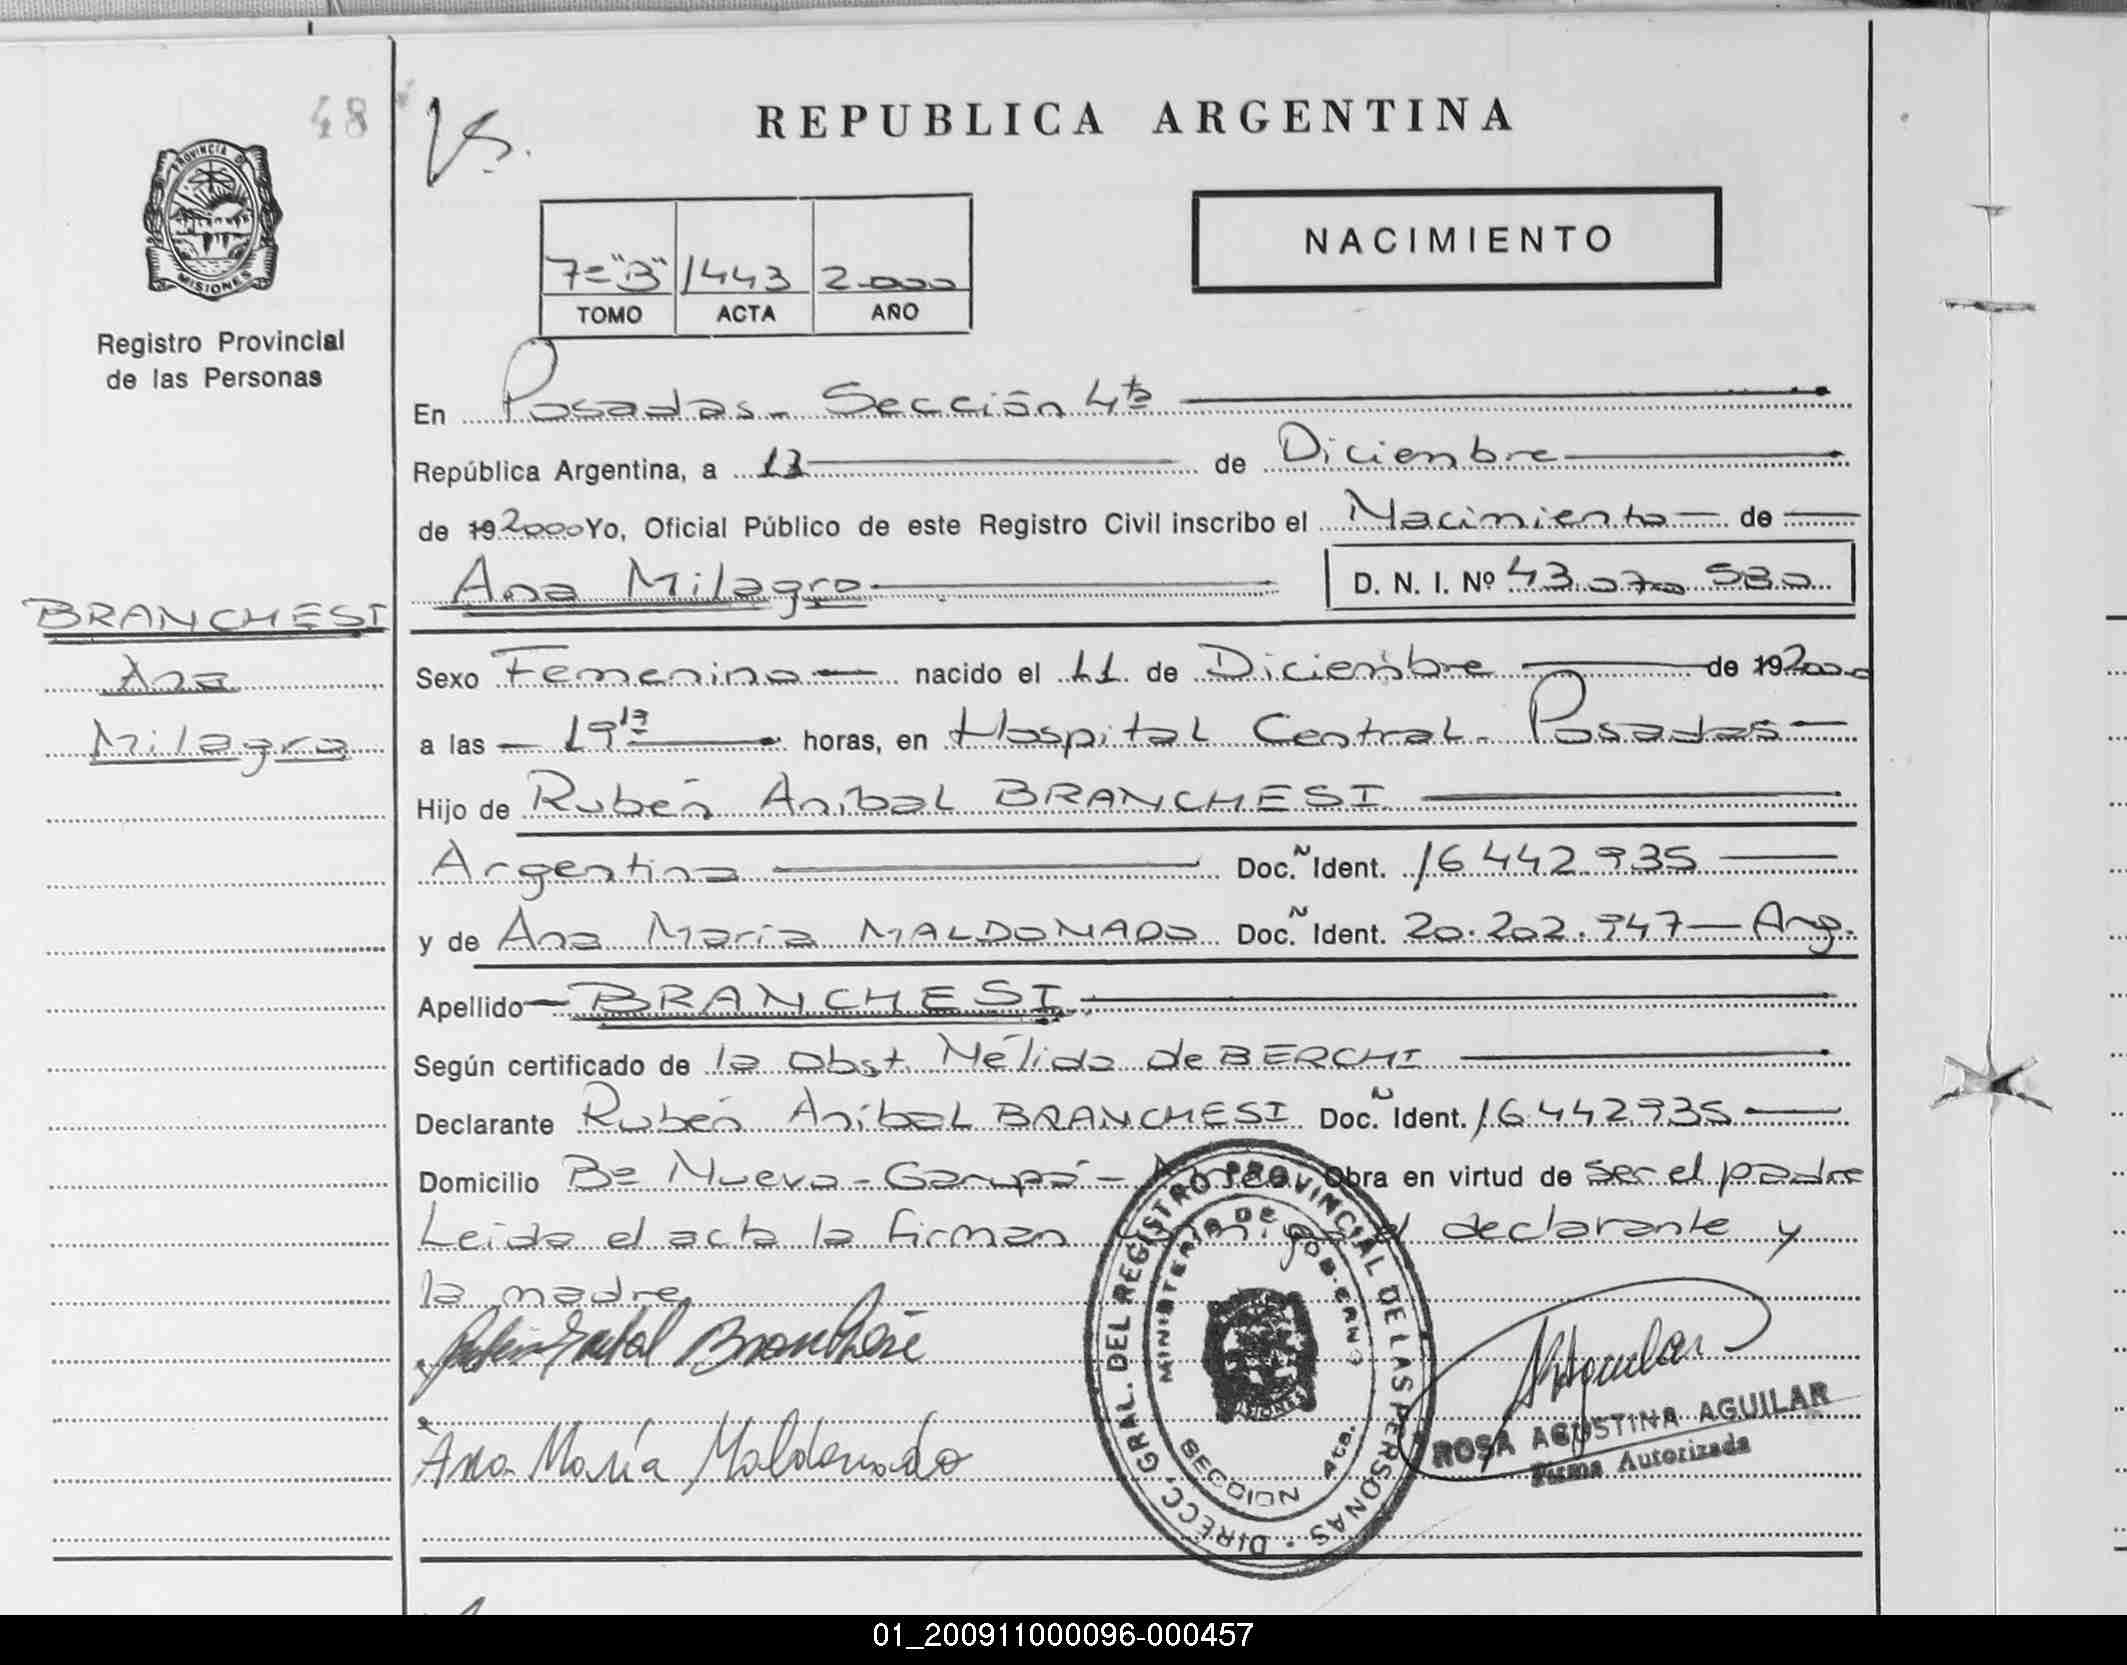 48
Vs.
REPUBLICA ARGENTINA
PROVINCIA DE
MISIONES
Registro Provincial
de las Personas
7º "B" 1443 2.000
TOMO ACTA AÑO
NACIMIENTO
En Posadas - Sección 4ta
República Argentina, a 13 de Diciembre
de 19 2000 Yo, Oficial Público de este Registro Civil inscribo el Nacimiento de
Ana Milagro D. N. I. Nº 43.070.530
BRANCHESI
Ana
Milagro
Sexo Femenino nacido el 11 de Diciembre de 19 2000
a las 19 17 horas, en Hospital Central - Posadas
Hijo de Rubén Aníbal BRANCHESI
Argentina Doc. Ñ Ident. 16.442.935
y de Ana María MALDONADO Doc. Ñ Ident. 20.202.947 - Arg.
Apellido BRANCHESI
Según certificado de la Obst. Nélida de BERCHI
Declarante Rubén Aníbal BRANCHESI Doc. Ñ Ident. 16.442.935
Domicilio Bº Nuevo - Garupá - Obra en virtud de ser el padre
Leida el acta la firman conmigo el declarante y
la madre
Rubén Anibal Branchesi
Ana María Maldonado
DIRECC. GRAL. DEL REGISTRO PROVINCIAL DE LAS PERSONAS
MINISTERIO DE GOBIERNO
SECCION 4ta.
MISIONES
RAguilar
ROSA AGUSTINA AGUILAR
Firma Autorizada
01_200911000096-000457